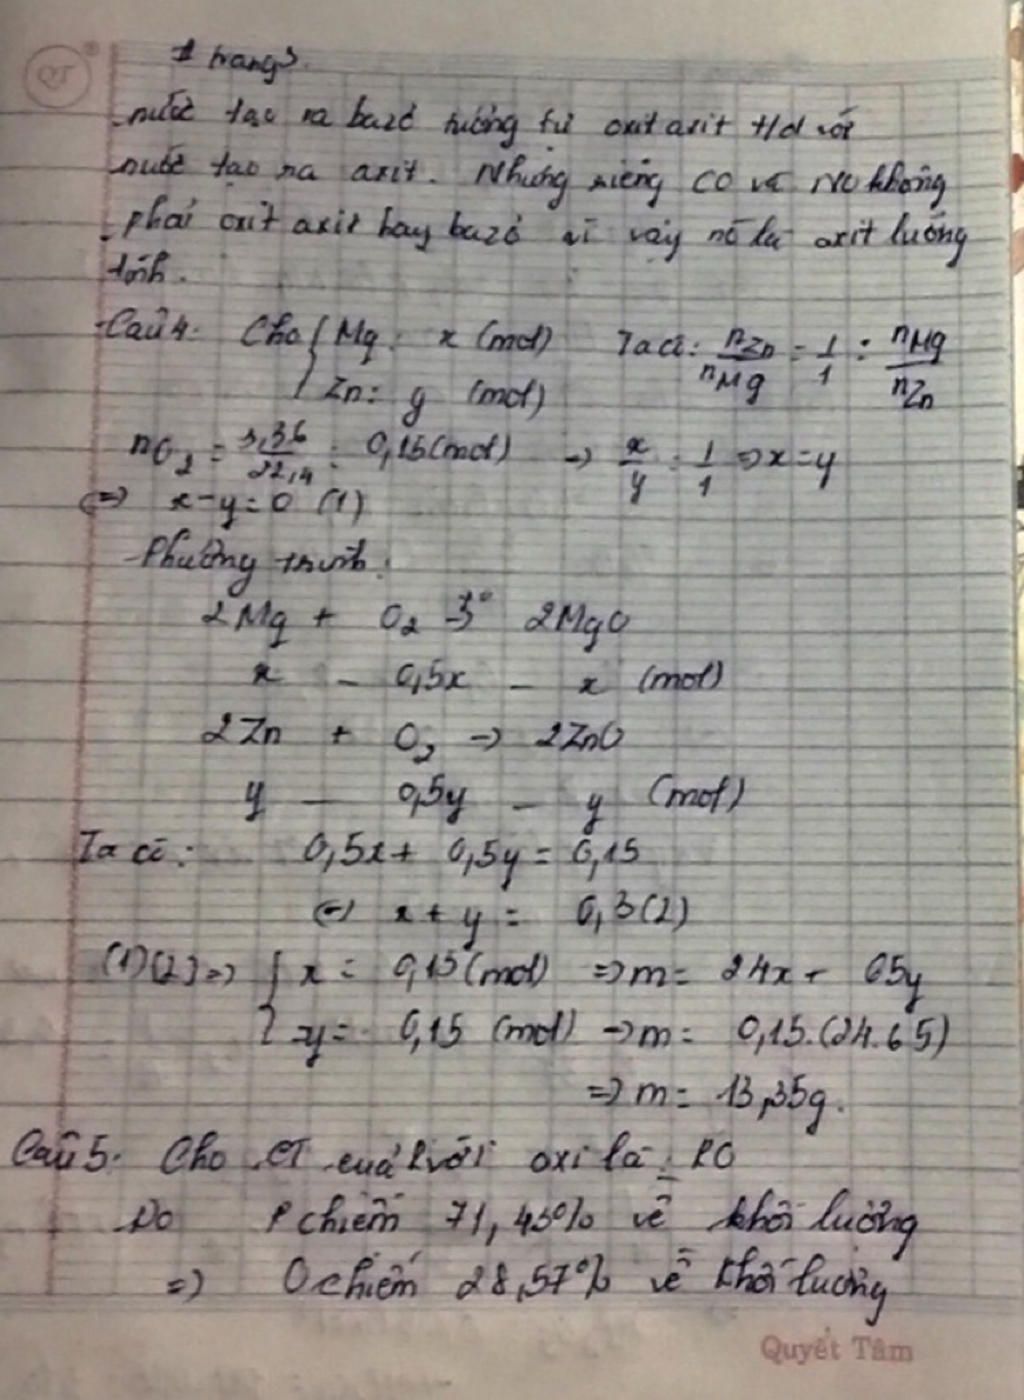 QT
1 trang 3.
nước tạo ra bazơ tương tự oxit axit t/d với
nước tạo ra axit. Nhưng riêng CO và NO không
phải oxit axit hay bazơ vì vậy nó là axit lưỡng
tính.
Câu 4. Cho { Mg: x (mol) Ta có: nZn/nMg = 1/1 = nMg/nZn
Zn: y (mol)
nO2 = 3,36/22,4 = 0,15 (mol) → x/y = 1/1 => x = y
<=> x - y = 0 (1)
Phương trình:
2Mg + O2 →t° 2MgO
x - 0,5x - x (mol)
2Zn + O2 → 2ZnO
y - 0,5y - y (mol)
Ta có: 0,5x + 0,5y = 0,15
<=> x + y = 0,3 (2)
(1)(2) => { x = 0,15 (mol) => m = 24x + 65y
y = 0,15 (mol) → m = 0,15.(24.65)
=> m = 13,35g.
Câu 5. Cho CT của R với oxi là: RO
Do R chiếm 71,43% về khối lượng
=> O chiếm 28,57% về khối lượng
Quyết Tâm